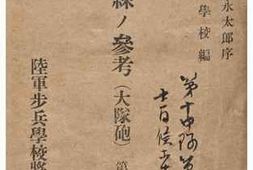 永太郎序
學校編
練ノ參考(大隊砲)第
陸軍步兵學校將
第十中隊第